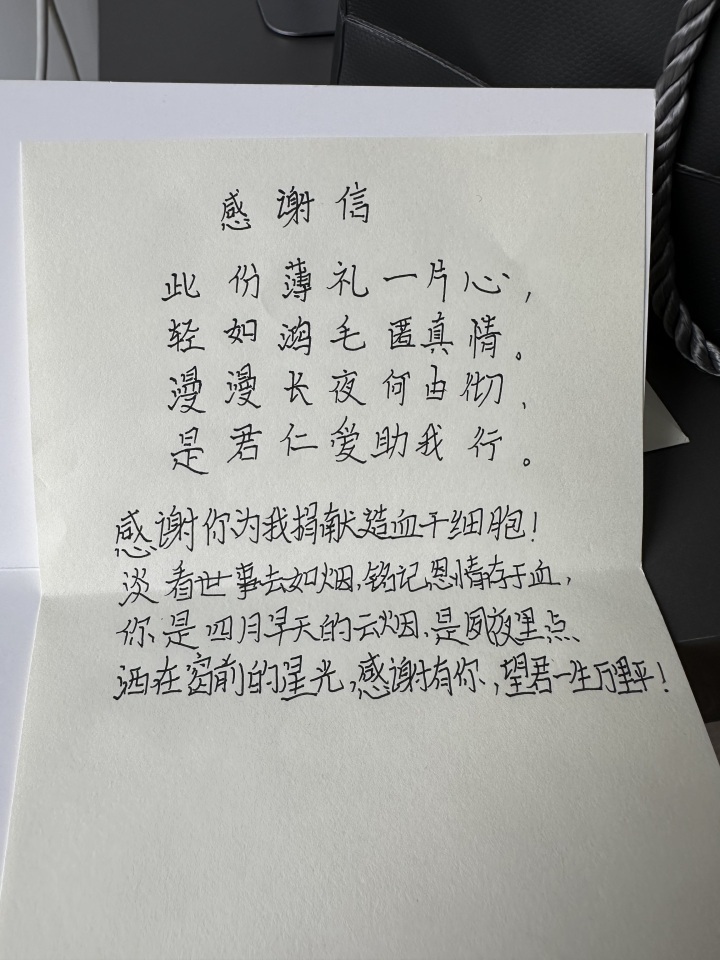 感谢信
此份薄礼一片心,
轻如鸿毛匿真情。
漫漫长夜何由彻,
是君仁爱助我行。
感谢你为我捐献造血干细胞!
淡看世事去如烟,铭记恩情存于血,
你是四月早天的云烟,是夙夜里点、
洒在窗前的星光,感谢有你,望君一生万里平!